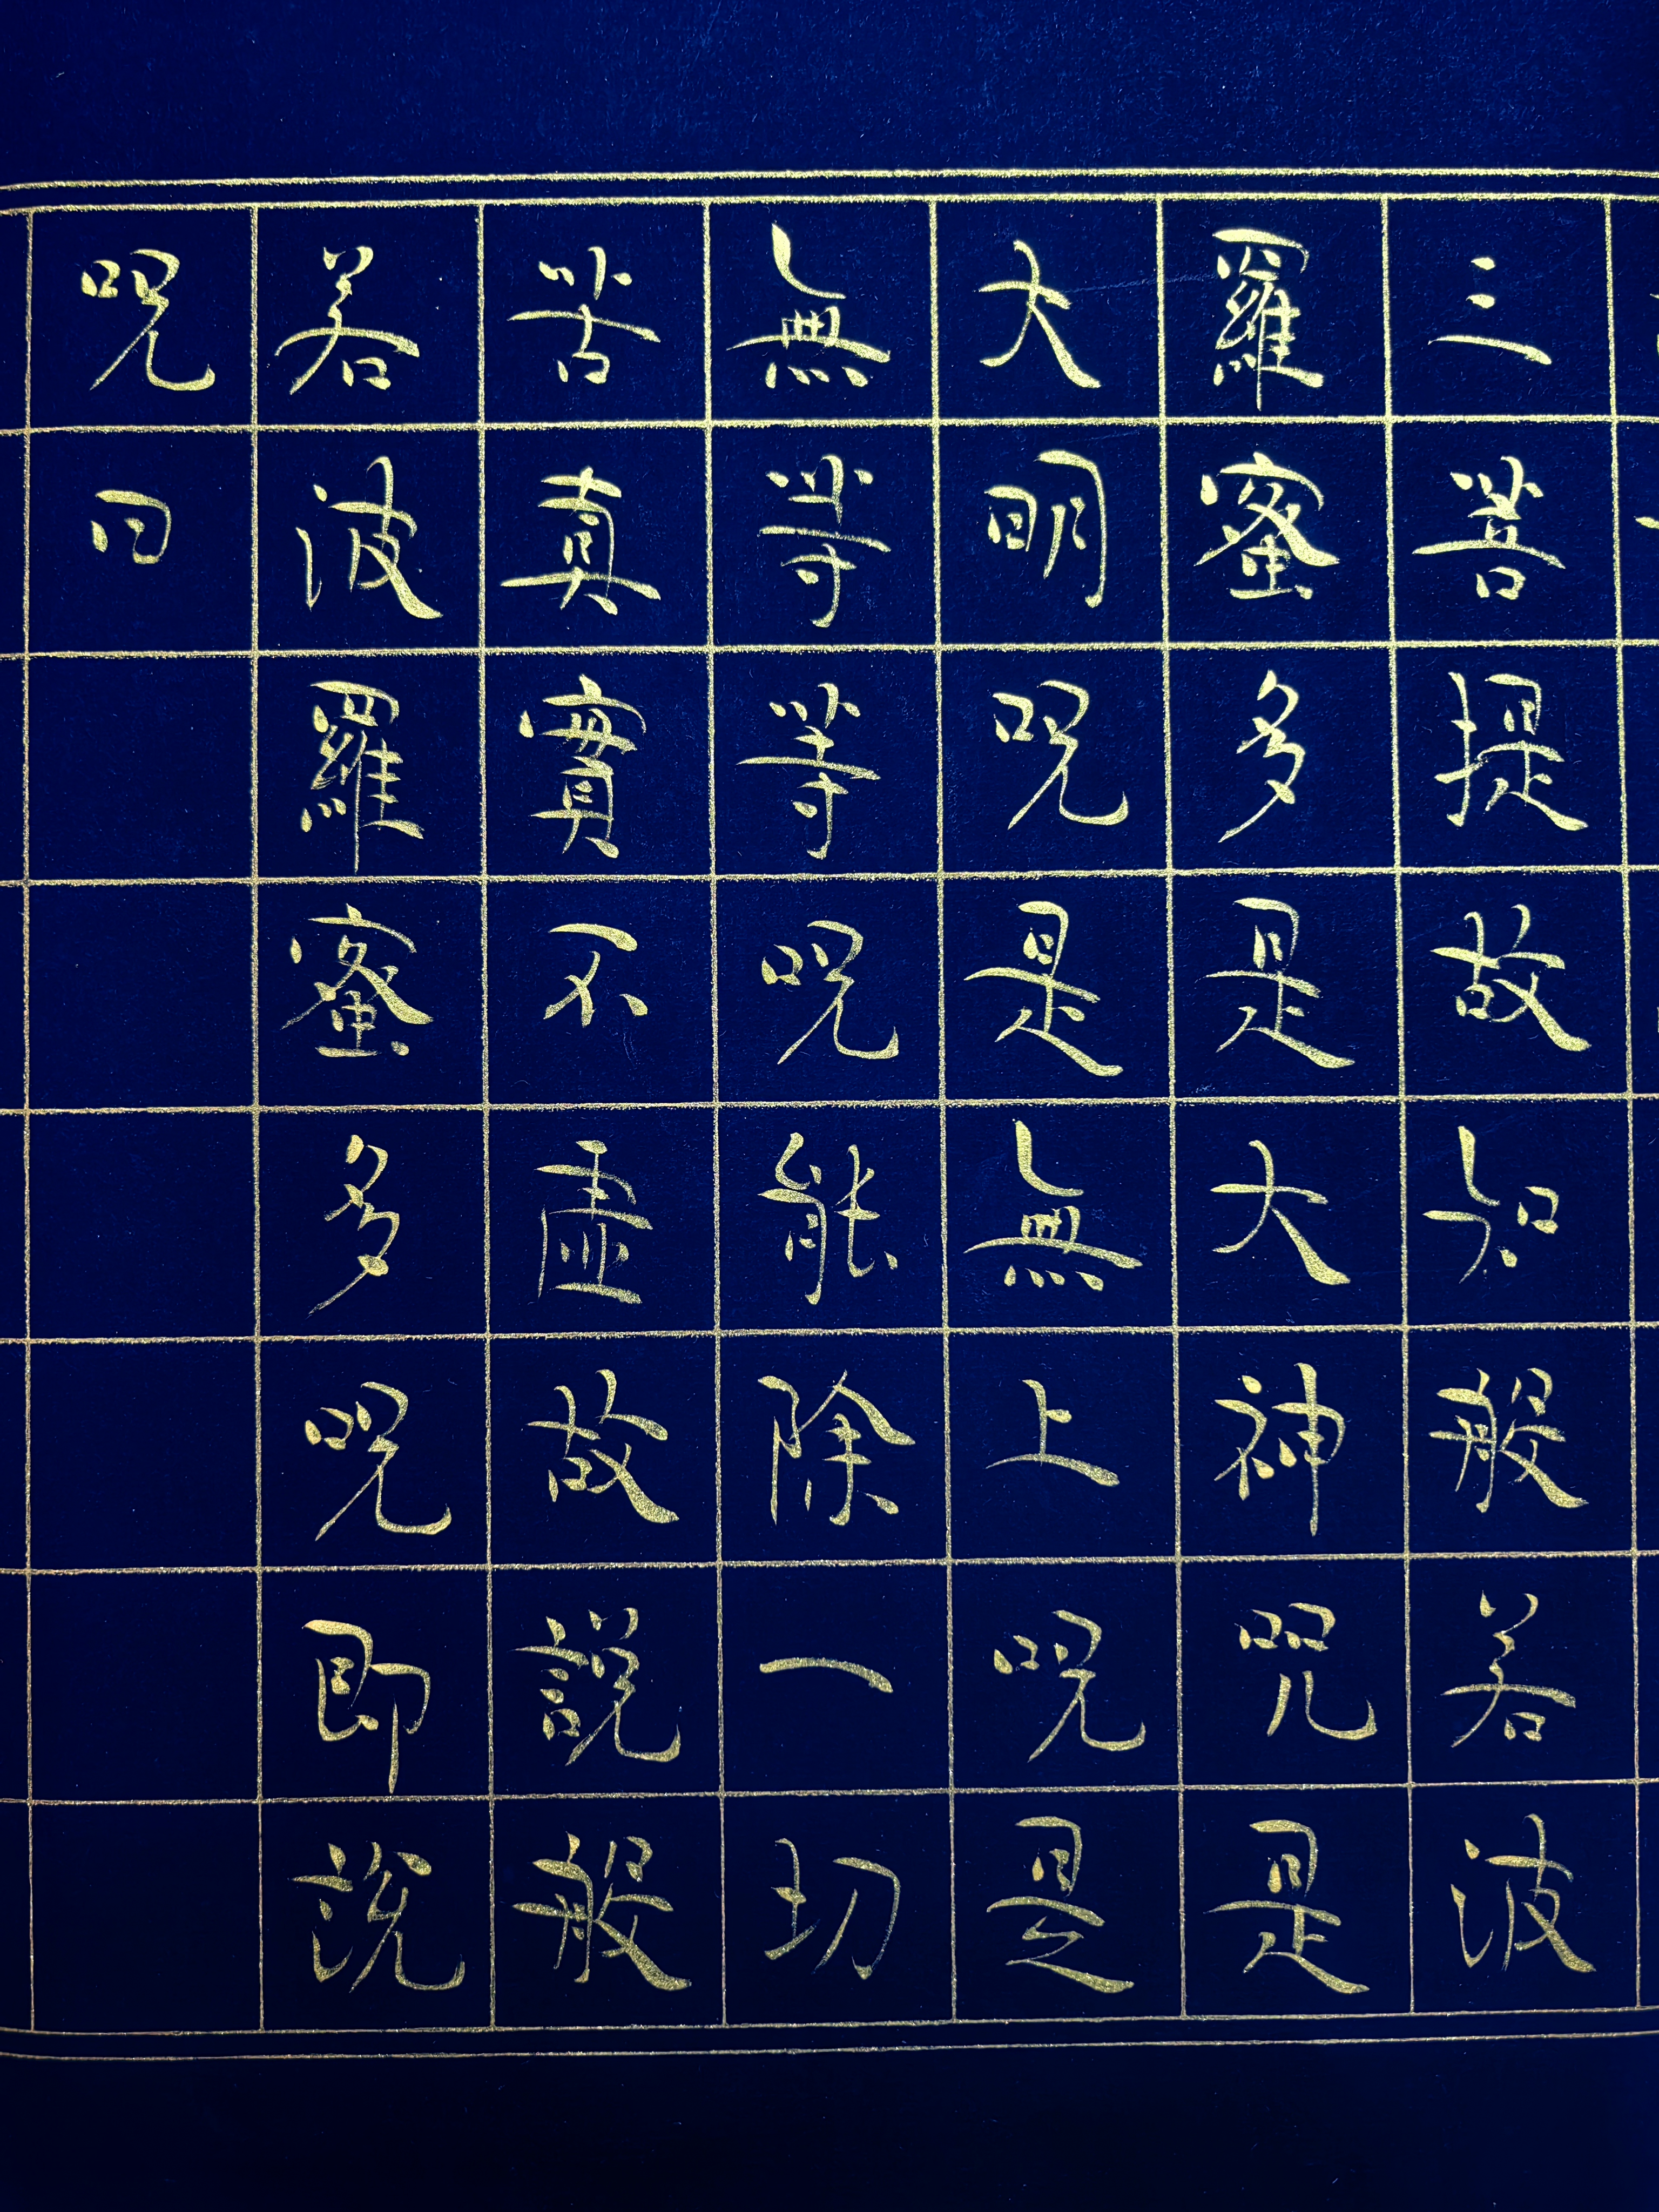 三菩提故知般若波
羅蜜多是大神咒是
大明呪是無上呪是
無等等呪能除一切
苦真實不虛故說般
若波羅蜜多呪即說
呪曰